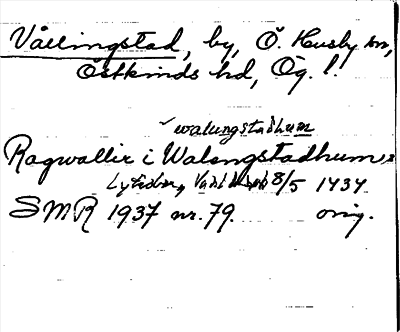 Vållingstad, by, Ö. Husby sn,
Östkinds hd, Ög. l.
walungstadhum
Ragwaller i Walongstadhum,
8/5 1434
SMR 1937 nr. 79. orig.